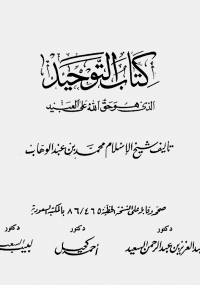 كتاب التوحيد
الذي هو حق الله على العبيد
تأليف شيخ الإسلام محمد بن عبد الوهاب
صححه وقابله على النسخة الخطية ٨٦/٤٦٥ بالمكتبة السعودية
دكتور دكتور دكتور
عبد العزيز بن عبد الرحمن السعيد أحمد كحيل لبيب السعيد